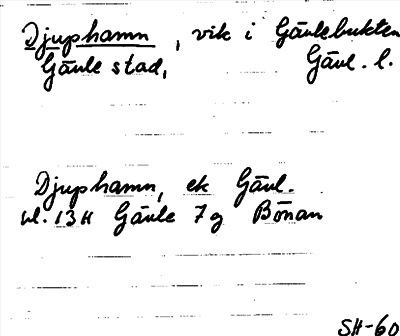 Djuphamn, vik i Gävlebukten
Gävle stad, Gävl. l.
Djuphamn, ek Gävl.
bl. 13H Gävle 7g Bönan
SH-60